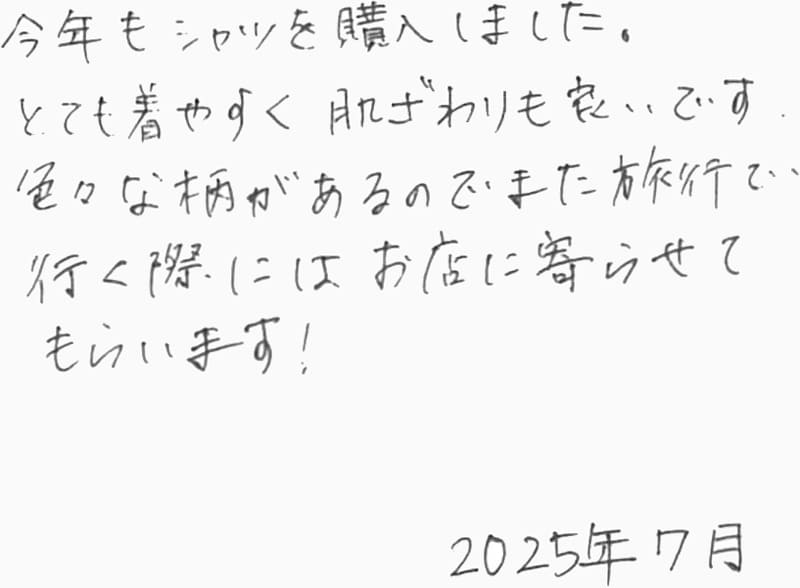 今年もシャツを購入しました。
とても着やすく肌ざわりも良いです.
色々な柄があるのでまた旅行で
行く際にはお店に寄らせて
もらいます!
2025年7月